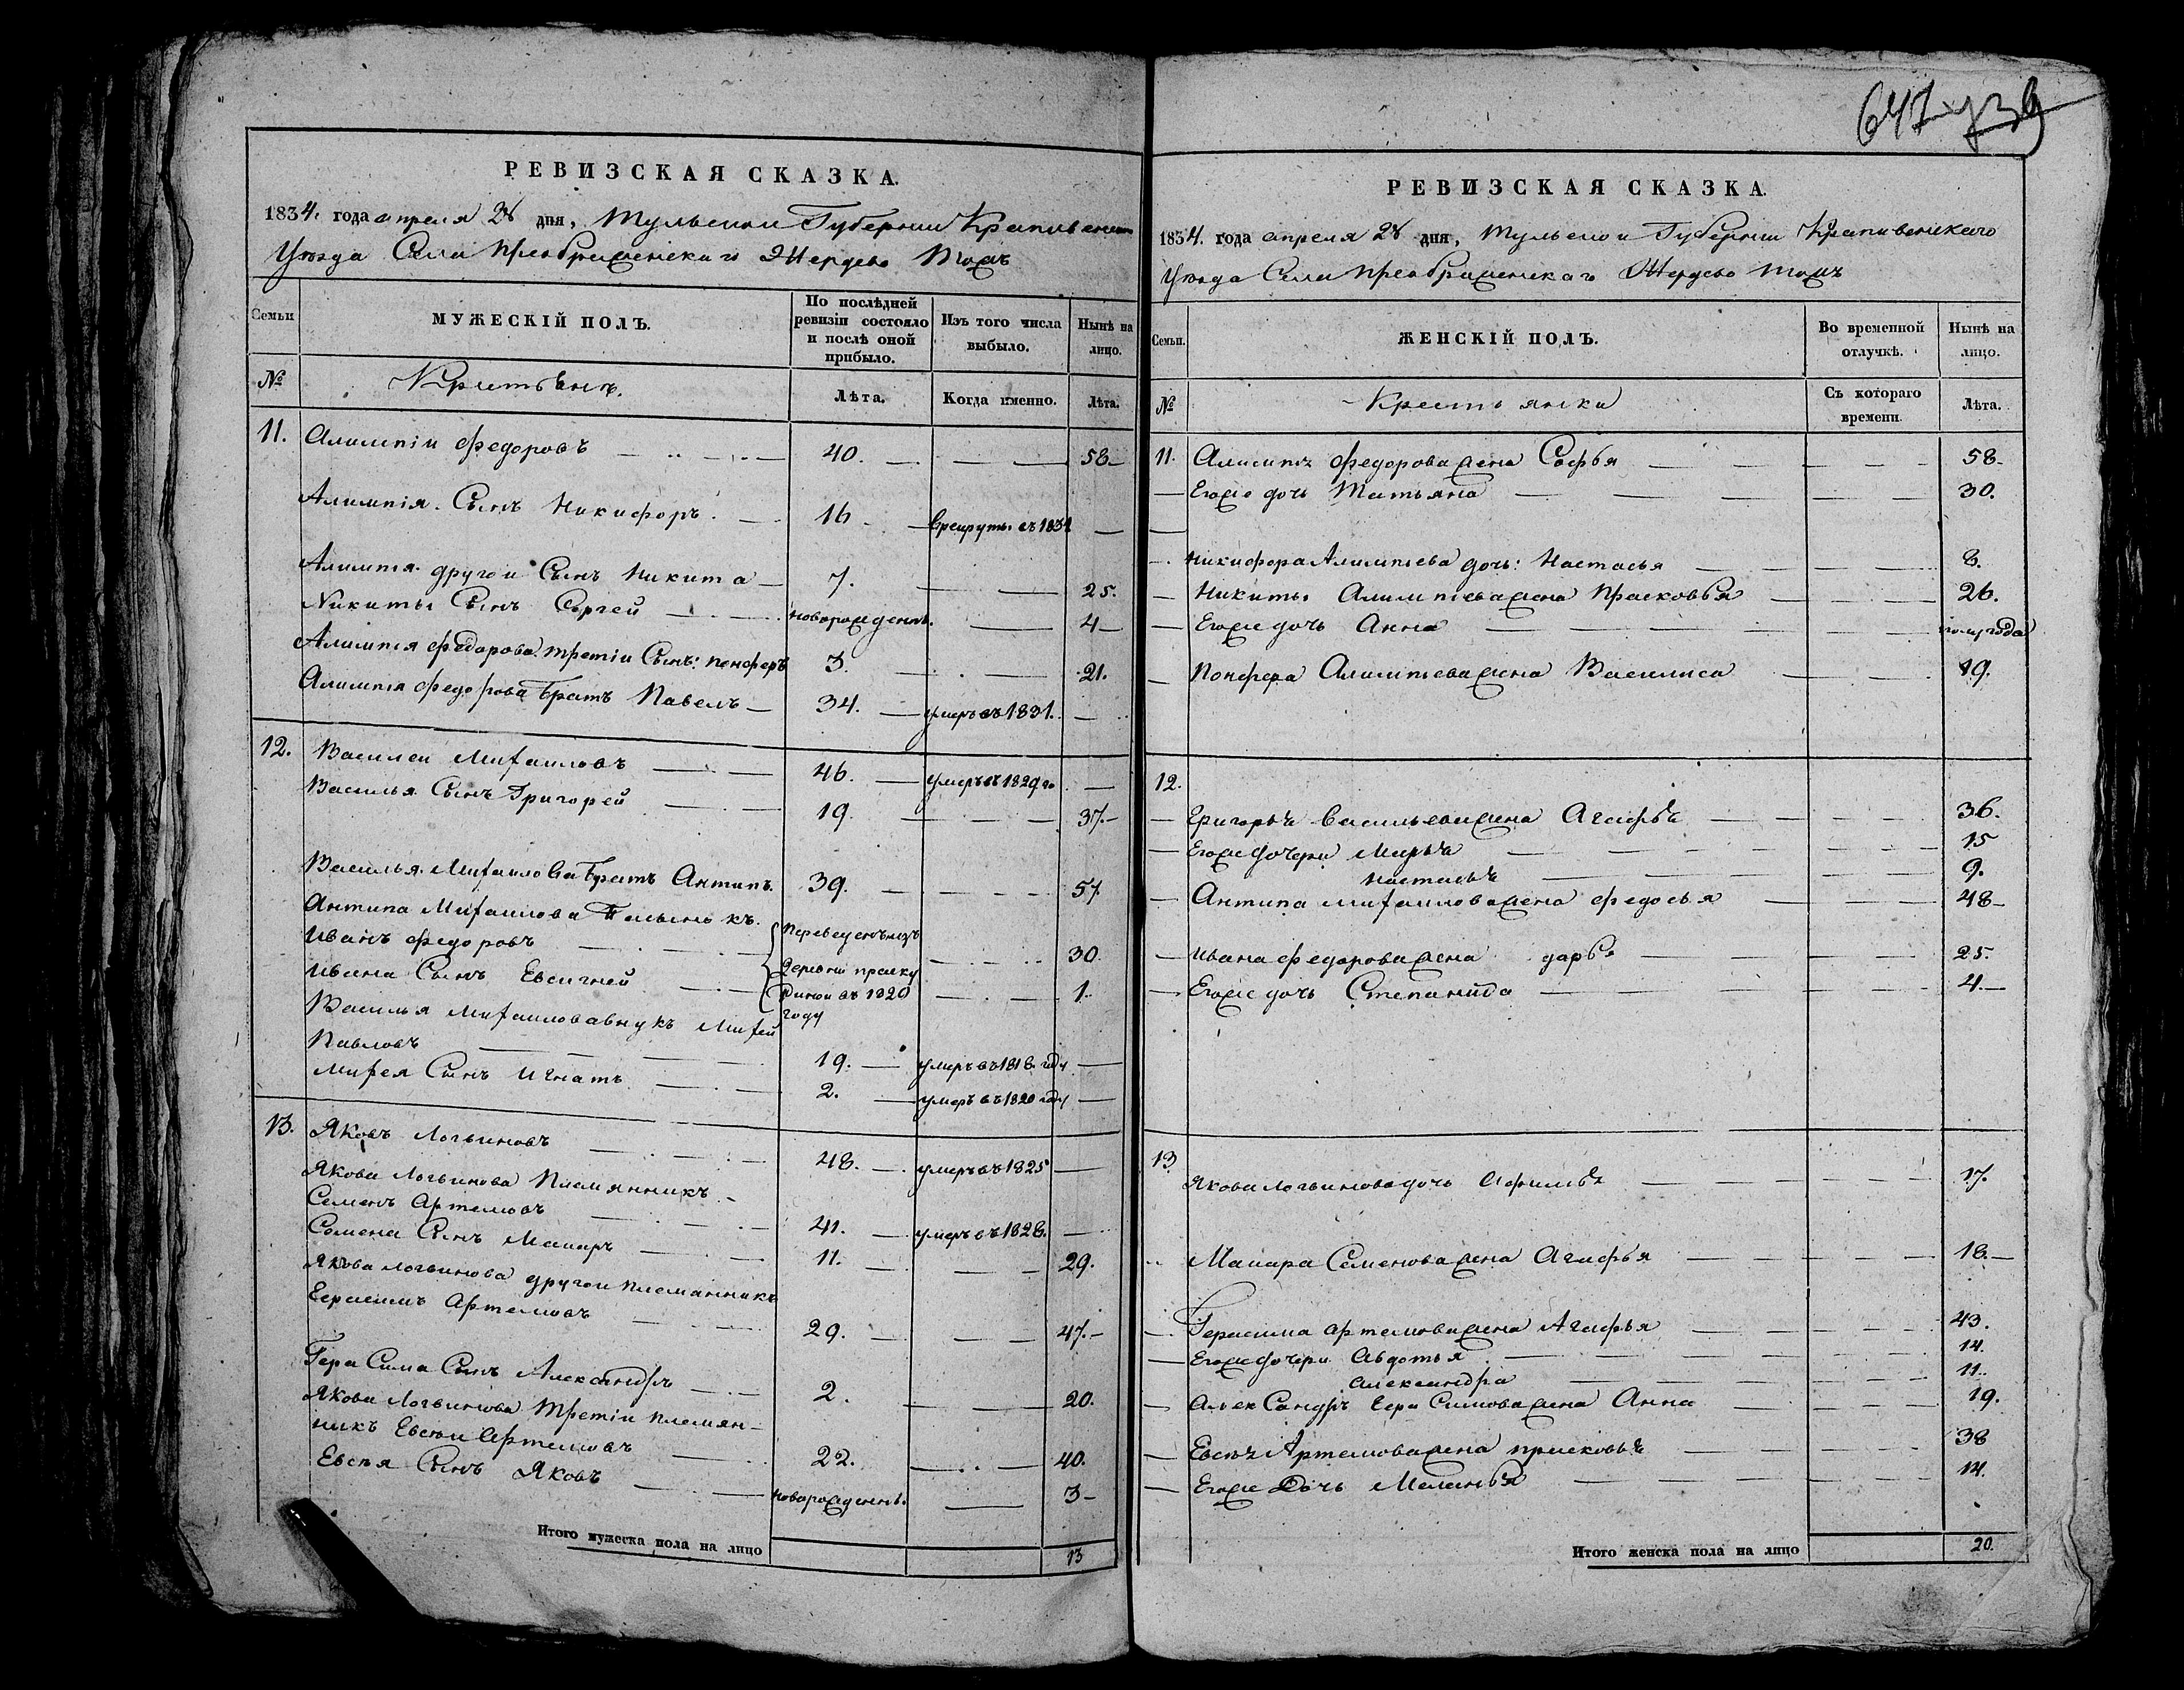 РЕВИЗСКАЯ СКАЗКА.
1834. года апреля 28 дня, Тульской Губернии Крапивенскаго
Уезда Села Преображенскаго Жердево тожъ
Семьи
МУЖЕСКІЙ ПОЛЪ.
По послѣдней ревизіи состояло и послѣ оной прибыло.
Изъ того числа выбыло.
Нынѣ на лицо.
№
Крестьянъ.
Лѣта.
Когда именно.
Лѣта.
11. Алимпіи Федоровъ 40. 58
Алимпія Сынъ Никифоръ. 16 в рекруты въ 1831
Алимпія другои Сынъ Никита 7. 25.
Никиты Сынъ Сергей новорожденъ. 4
Алимпія Федорова третіи Сынъ: Понферъ 3. 21.
Алимпія Федорова братъ Павелъ 34. умеръ въ 1831.
12. Василеи Михаиловъ 46. умеръ въ 1829 го
Василья Сынъ Григорей 19. 37.
Василья Михаилова братъ Антипъ. 39. 57
Антипа Михаилова
Иванъ Федоровъ переведенъ изъ 30.
Ивана Сынъ Евсигней деревни 1.
въ 1829 году
Василья Михаилова внукъ Михей
Павловъ 19. умеръ въ 1818 году
Михея Сынъ Игнатъ 2. умеръ въ 1820 году
13. Яковъ Логвиновъ 48. умеръ въ 1825
Якова Логвинова Племянникъ
Семенъ Артемовъ 41. умеръ въ 1828.
Семена Сынъ Макаръ 11. 29.
Якова Логвинова другои племянникъ
Герасимъ Артемовъ 29. 47.
Герасима Сынъ Александръ 2. 20.
Якова Логвинова третіи племян-
никъ Евсеи Артемовъ 22. 40.
Евсея Сынъ Яковъ новорожденъ. 3
Итого мужеска пола на лицо 13
647 739
РЕВИЗСКАЯ СКАЗКА.
1834. года апреля 28 дня, Тульской Губернии Крапивенскаго
Уезда Села Преображенскаго Жердево тожъ
Семьи.
ЖЕНСКІЙ ПОЛЪ.
Во временной отлучкѣ.
Нынѣ на лицо.
№
Крестьянки
Съ котораго времени.
Лѣта.
11. Алимпія Федорова жена Софья 58
Егоже дочь Татьяна 30.
Никифора Алимпіева дочь: Настасья 8.
Никиты Алимпіева жена Прасковья 26.
Егоже дочь Анна полугода
Понфера Алимпіева жена Василиса 19.
12.
Григорья Васильева жена Агафья 36.
Егоже дочери Марья 15
Настасья 9.
Антипа Михаилова жена Федосья 48
Ивана Федорова жена Дарья 25.
Егоже дочь Степанида 4.
13
Якова Логвинова дочь Афимья 17.
Макара Семенова жена Агафья 18.
Герасима Артемова жена Агафья 43.
Егоже дочери Авдотья 14.
Александра 11.
Александръ Герасимова жена Анна 19.
Евсея Артемова жена Прасковья 38
Егоже Дочь Меланья 14.
Итого женска пола на лицо 20.